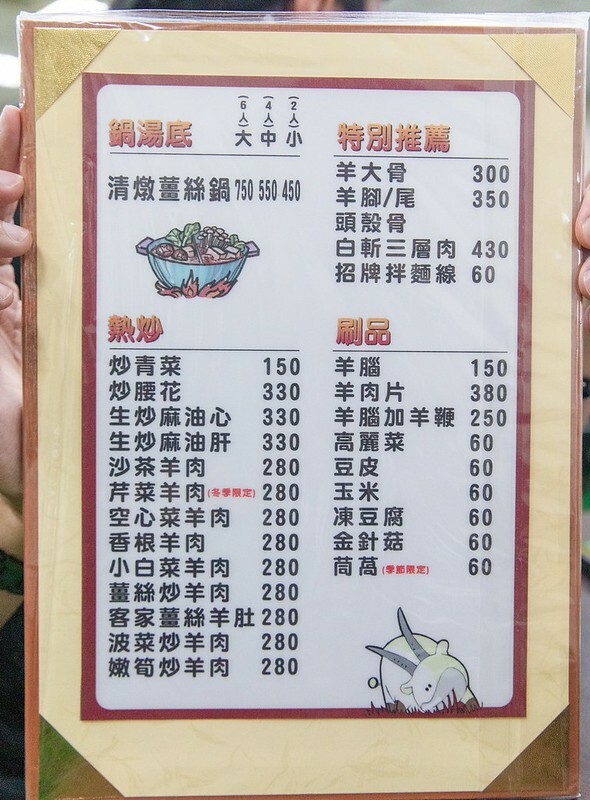 鍋湯底 大(6人) 中(4人) 小(2人)
清燉薑絲鍋 750 550 450
熱炒
炒青菜 150
炒腰花 330
生炒麻油心 330
生炒麻油肝 330
沙茶羊肉 280
芹菜羊肉(冬季限定) 280
空心菜羊肉 280
香根羊肉 280
小白菜羊肉 280
薑絲炒羊肉 280
客家薑絲羊肚 280
波菜炒羊肉 280
嫩筍炒羊肉 280
特別推薦
羊大骨 300
羊腳/尾 350
頭殼骨
白斬三層肉 430
招牌拌麵線 60
刷品
羊腦 150
羊肉片 380
羊腦加羊鞭 250
高麗菜 60
豆皮 60
玉米 60
凍豆腐 60
金針菇 60
茼萵(季節限定) 60